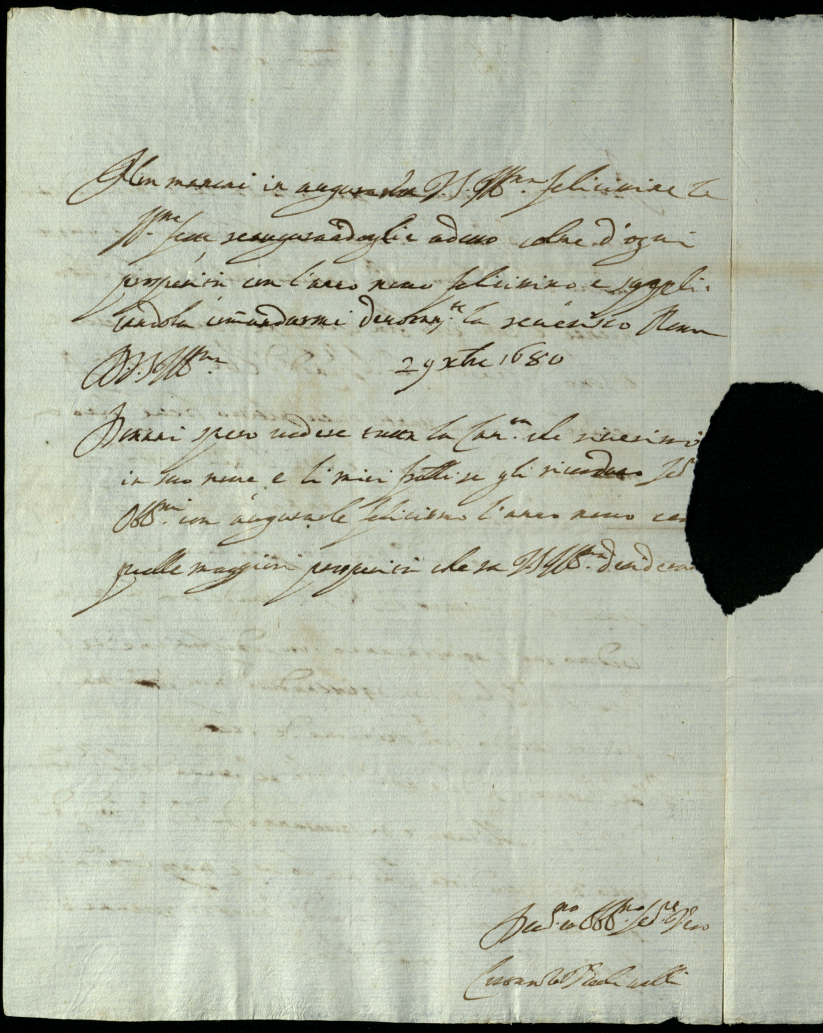 Non mancai in augurarla V.S. Ill.ma felicissime le
S.me feste reaugurandogli adesso colme d'ogni
prosperità con l'anno nuovo felicissimo e suppli-
candola comandarmi devotam.te la riverisco Roma
D.V.S. Ill.ma 29 xbre 1680
Domani spero vedere tutta la che riverirò
in suo nome e li miei fratelli se gli ricordano
Obb.mi con augurarle felicissimo l'anno nuovo con
quelle maggiori prosperità che sa V.S. Ill.ma desiderare
Dev.mo et Obb.mo Se.re Vero